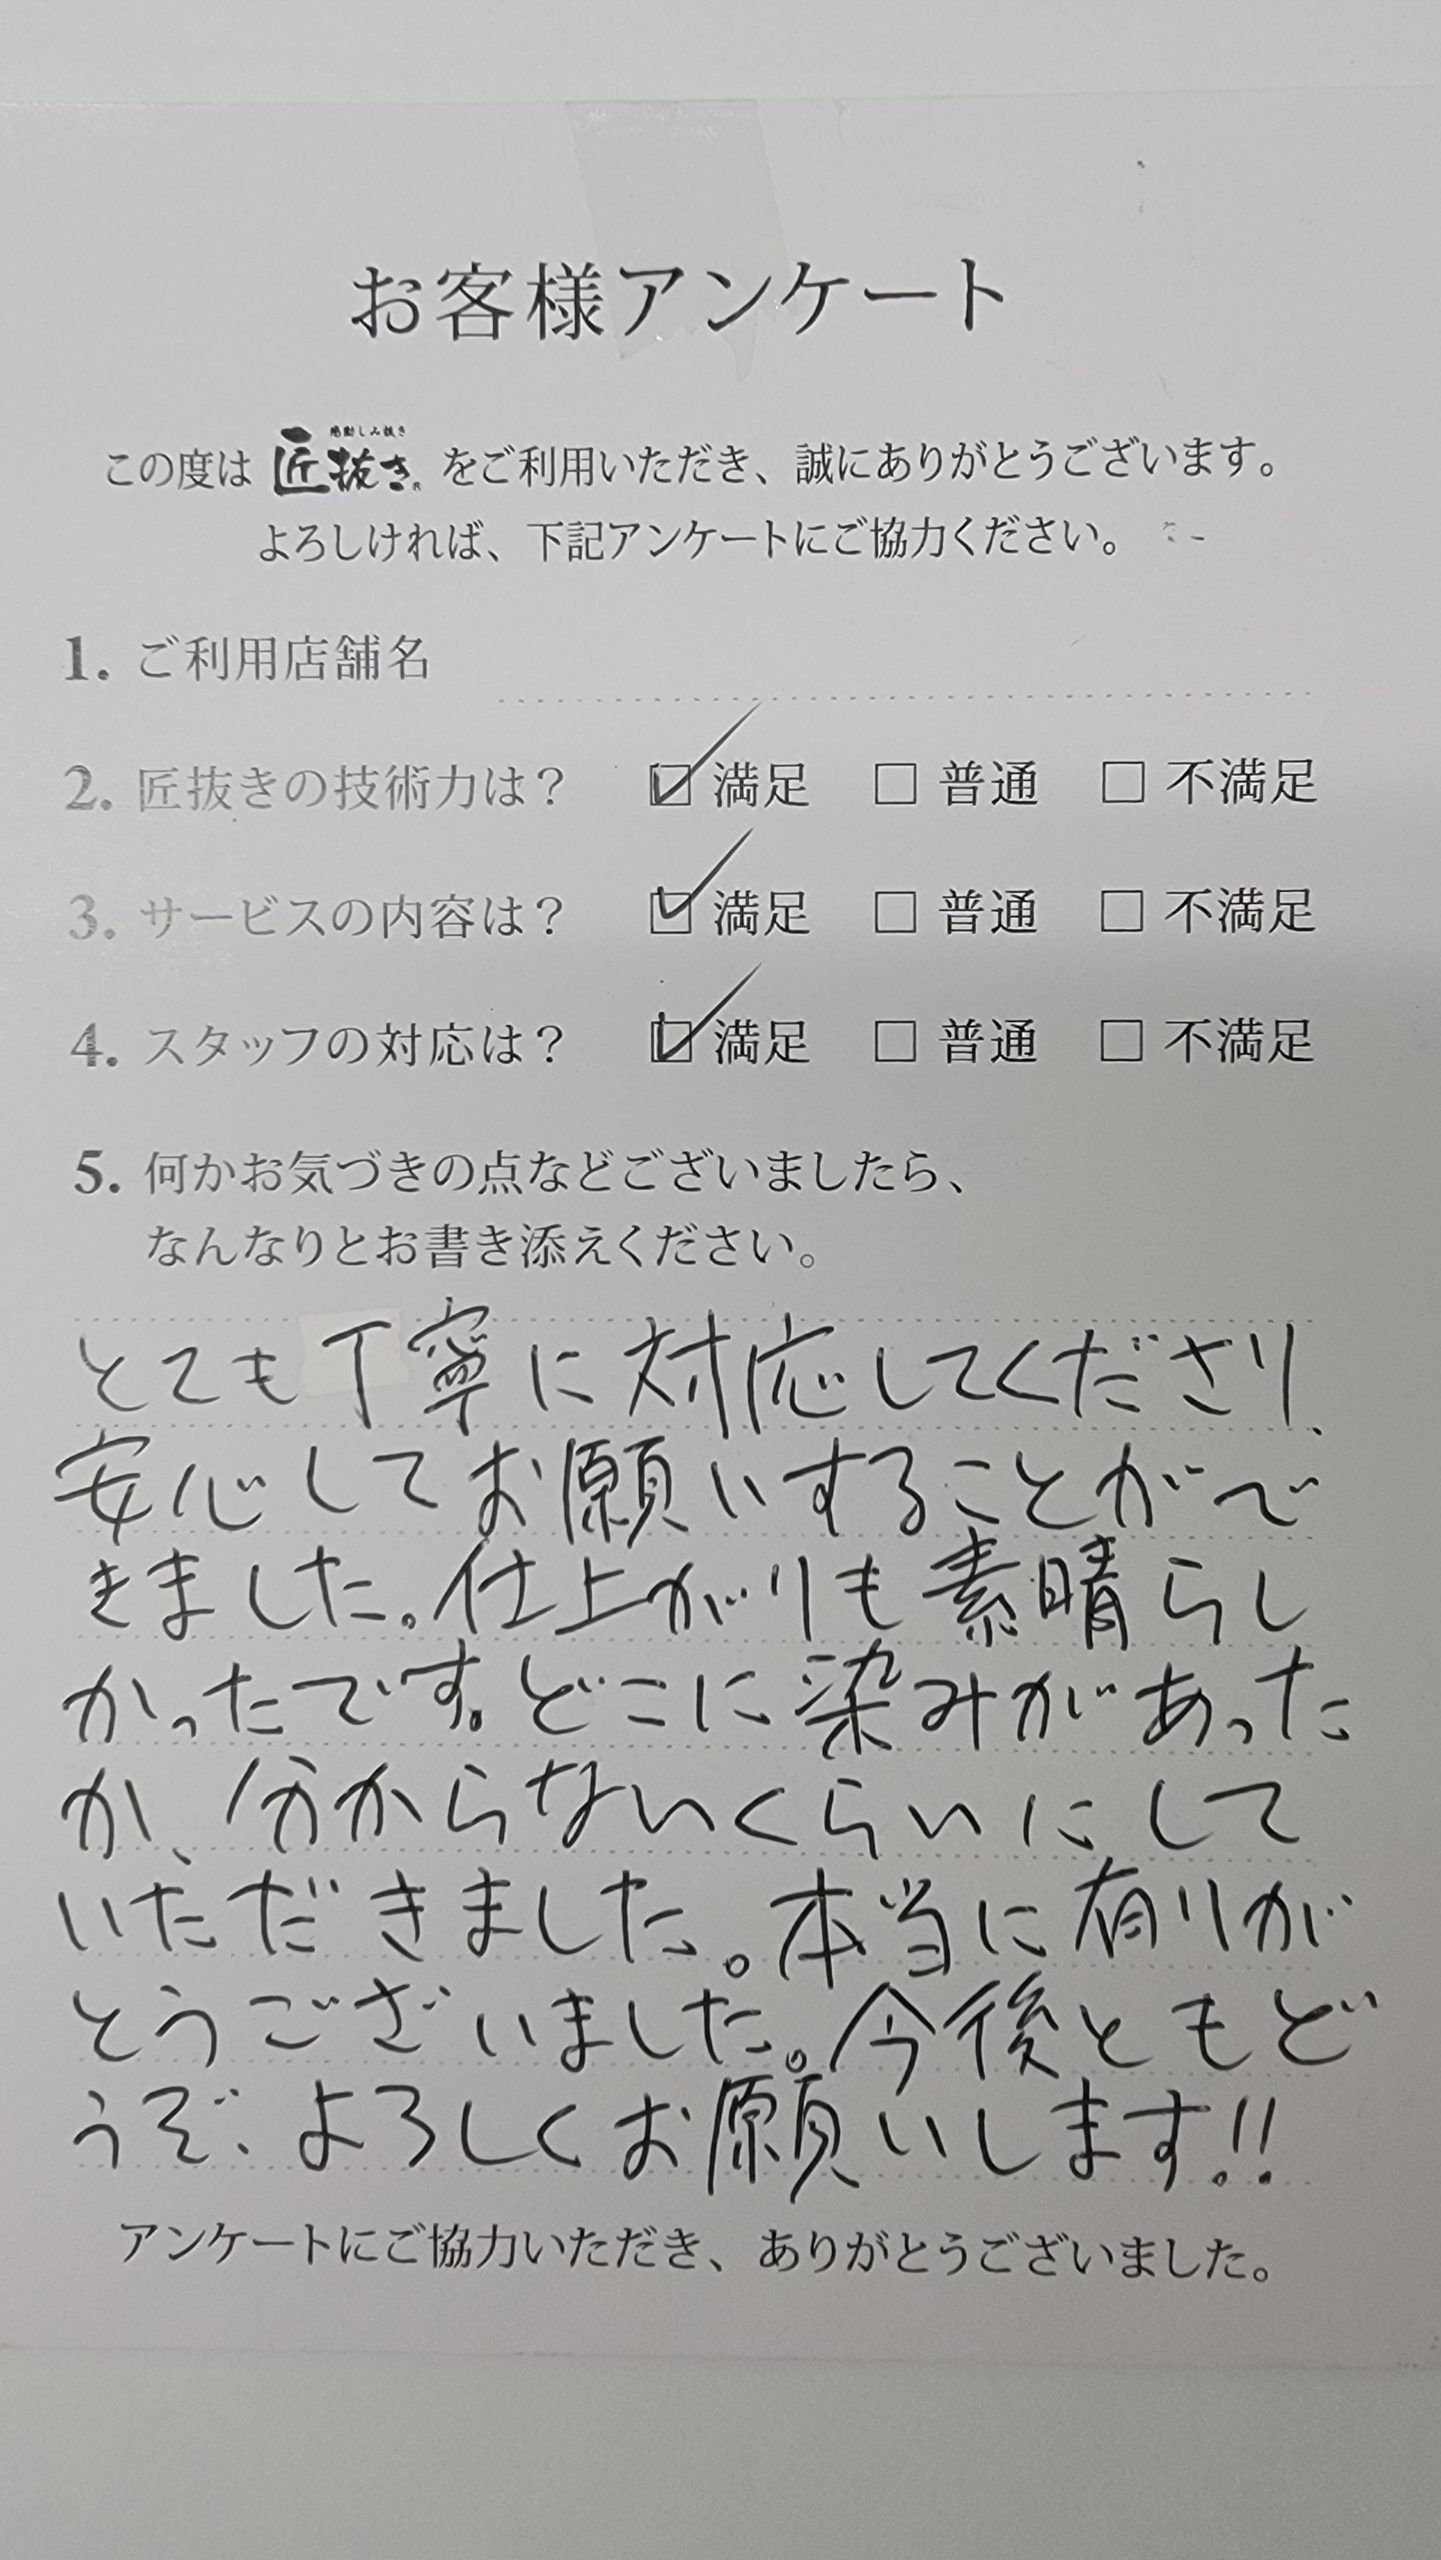 お客様アンケート
感動しみ抜き
この度は 匠抜き をご利用いただき、誠にありがとうございます。
よろしければ、下記アンケートにご協力ください。
1. ご利用店舗名
2. 匠抜きの技術力は？ ☑ 満足 □ 普通 □ 不満足
3. サービスの内容は？ ☑ 満足 □ 普通 □ 不満足
4. スタッフの対応は？ ☑ 満足 □ 普通 □ 不満足
5. 何かお気づきの点などございましたら、
なんなりとお書き添えください。
とても丁寧に対応してくださり、
安心してお願いすることがで
きました。仕上がりも素晴らし
かったです。どこに染みがあった
か、分からないくらいにして
いただきました。本当に有りが
とうございました。今後ともど
うぞ、よろしくお願いします!!
アンケートにご協力いただき、ありがとうございました。